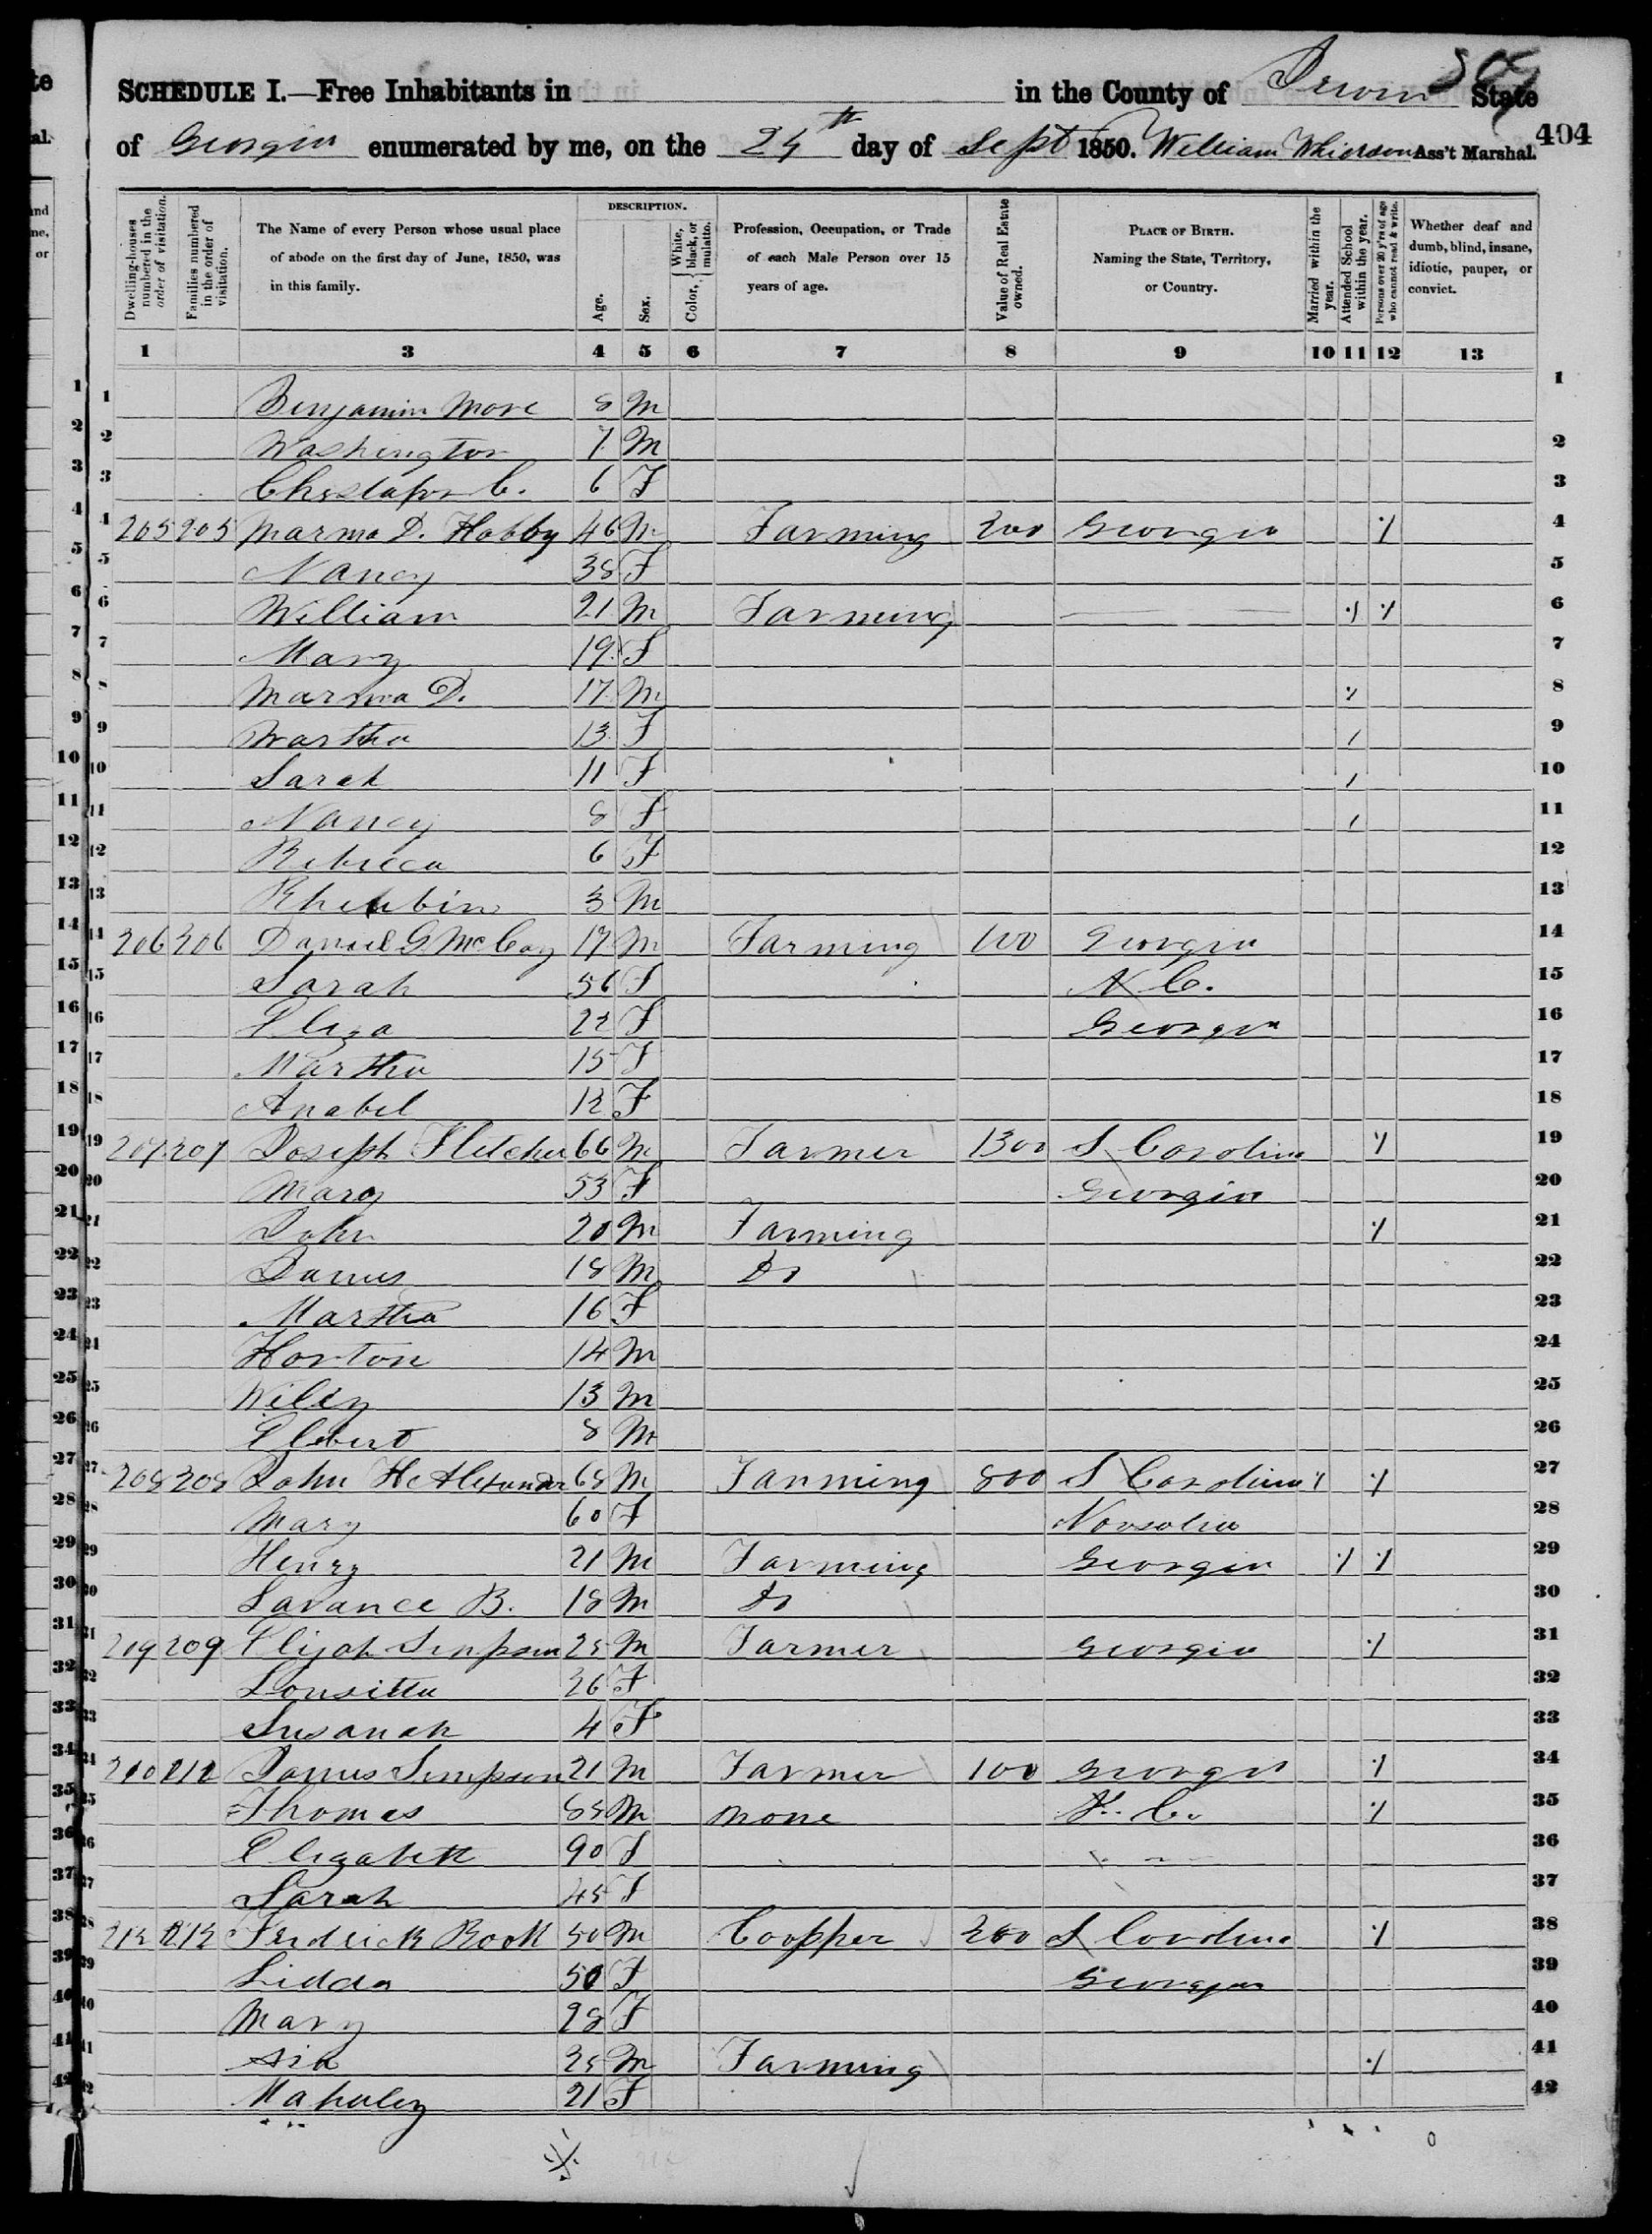 SCHEDULE I.—Free Inhabitants in in the County of Irwin State
of Georgia enumerated by me, on the 24th day of Sept 1850. William Ass't Marshal. 404
Dwelling-houses numbered in the order of visitation.
Families numbered in the order of visitation.
The Name of every Person whose usual place of abode on the first day of June, 1850, was in this family.
DESCRIPTION.
Age.
Sex.
Color, { White, black, or mulatto.
Profession, Occupation, or Trade of each Male Person over 15 years of age.
Value of Real Estate owned.
PLACE OF BIRTH. Naming the State, Territory, or Country.
Married within the year.
Attended School within the year.
Persons over 20 y'rs of age who cannot read & write.
Whether deaf and dumb, blind, insane, idiotic, pauper, or convict.
1 3 4 5 6 7 8 9 10 11 12 13
1 Benjamin More 8 M 1
2 Washington 7 M 2
3 C. 6 F 3
4 205 205 Marma D. Hobby 46 M Farming 200 Georgia / 4
5 Nancy 38 F 5
6 William 21 M Farming — — / / 6
7 Mary 19 F 7
8 Marma D. 17 M / 8
9 Martha 13 F / 9
10 Sarah 11 F / 10
11 Nancy 8 F / 11
12 Rebecca 6 F 12
13 Rheubin 3 M 13
14 206 206 Daniel G. McCoy 17 M Farming 100 Georgia 14
15 Sarah 56 F N C. 15
16 Eliza 22 F Georgia 16
17 Martha 15 F 17
18 Anabel 12 F 18
19 207 207 Joseph Fletcher 66 M Farmer 1300 S Carolina / 19
20 Mary 53 F Georgia 20
21 John 20 M Farming / 21
22 James 18 M Do 22
23 Martha 16 F 23
24 Horton 14 M 24
25 Wiley 13 M 25
26 Elebert 8 M 26
27 208 208 John Mc Alexander 68 M Farming 800 S Carolina / / 27
28 Mary 60 F 28
29 Henry 21 M Farming Georgia / / 29
30 Lavance B. 18 M Do 30
31 209 209 Elijah Simpson 25 M Farmer Georgia / 31
32 26 F 32
33 Susanah 4 F 33
34 James Simpson 21 M Farmer 100 Georgia / 34
35 Thomas 85 M None N. C. / 35
36 Elizabeth 90 F 36
37 Sarah 45 F 37
38 212 212 Fredrick Rook 50 M Coopper 200 S Carolina / 38
39 Lidda 50 F Georgia 39
40 Mary 28 F 40
41 25 M Farming / 41
42 Mahaley 21 F 42